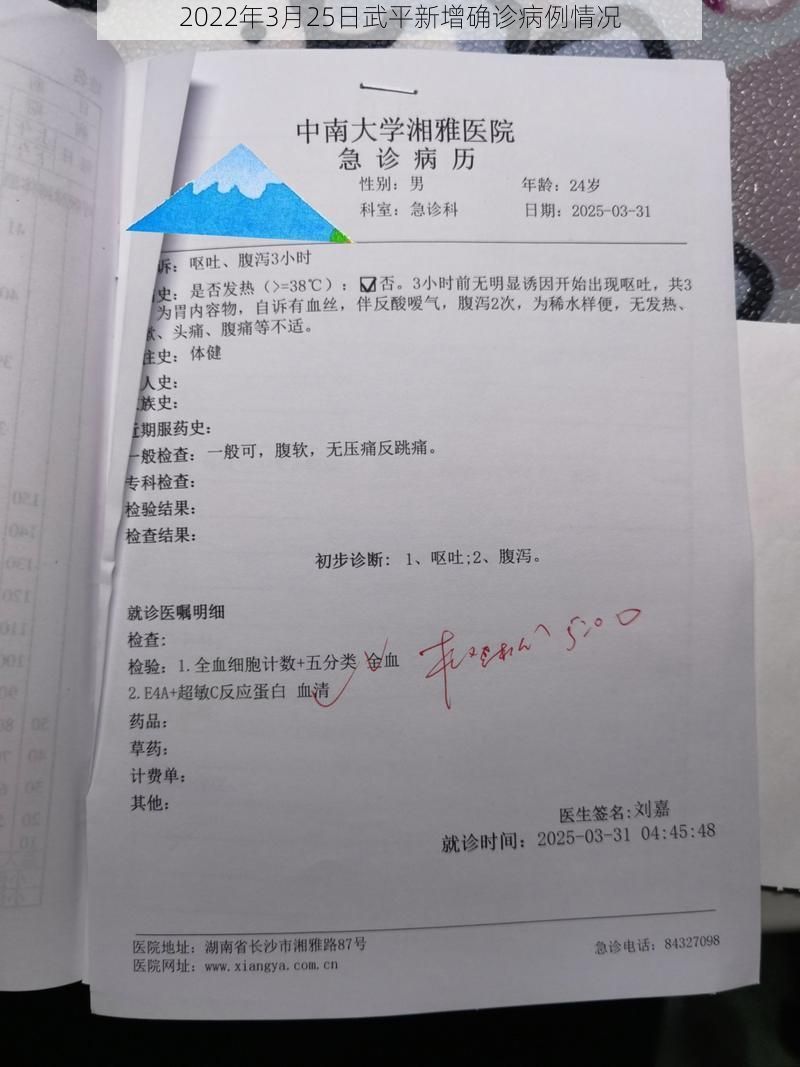 2022年3月25日武平新增确诊病例情况
中南大学湘雅医院
急诊病历
性别：男 年龄：24岁
科室：急诊科 日期：2025-03-31
诉：呕吐、腹泻3小时
史：是否发热（>=38℃）：☑否。3小时前无明显诱因开始出现呕吐，共3
为胃内容物，自诉有血丝，伴反酸嗳气，腹泻2次，为稀水样便，无发热、
、头痛、腹痛等不适。
往史：体健
人史：
族史：
近期服药史：
一般检查：一般可，腹软，无压痛反跳痛。
专科检查：
检验结果：
检查结果：
初步诊断： 1、呕吐;2、腹泻。
就诊医嘱明细
检查：
检验：1.全血细胞计数+五分类 全血
2.E4A+超敏C反应蛋白 血清
5:00
药品：
草药：
计费单：
其他：
医生签名:刘嘉
就诊时间：2025-03-31 04:45:48
医院地址：湖南省长沙市湘雅路87号 急诊电话：84327098
医院网址：www.xiangya.com.cn